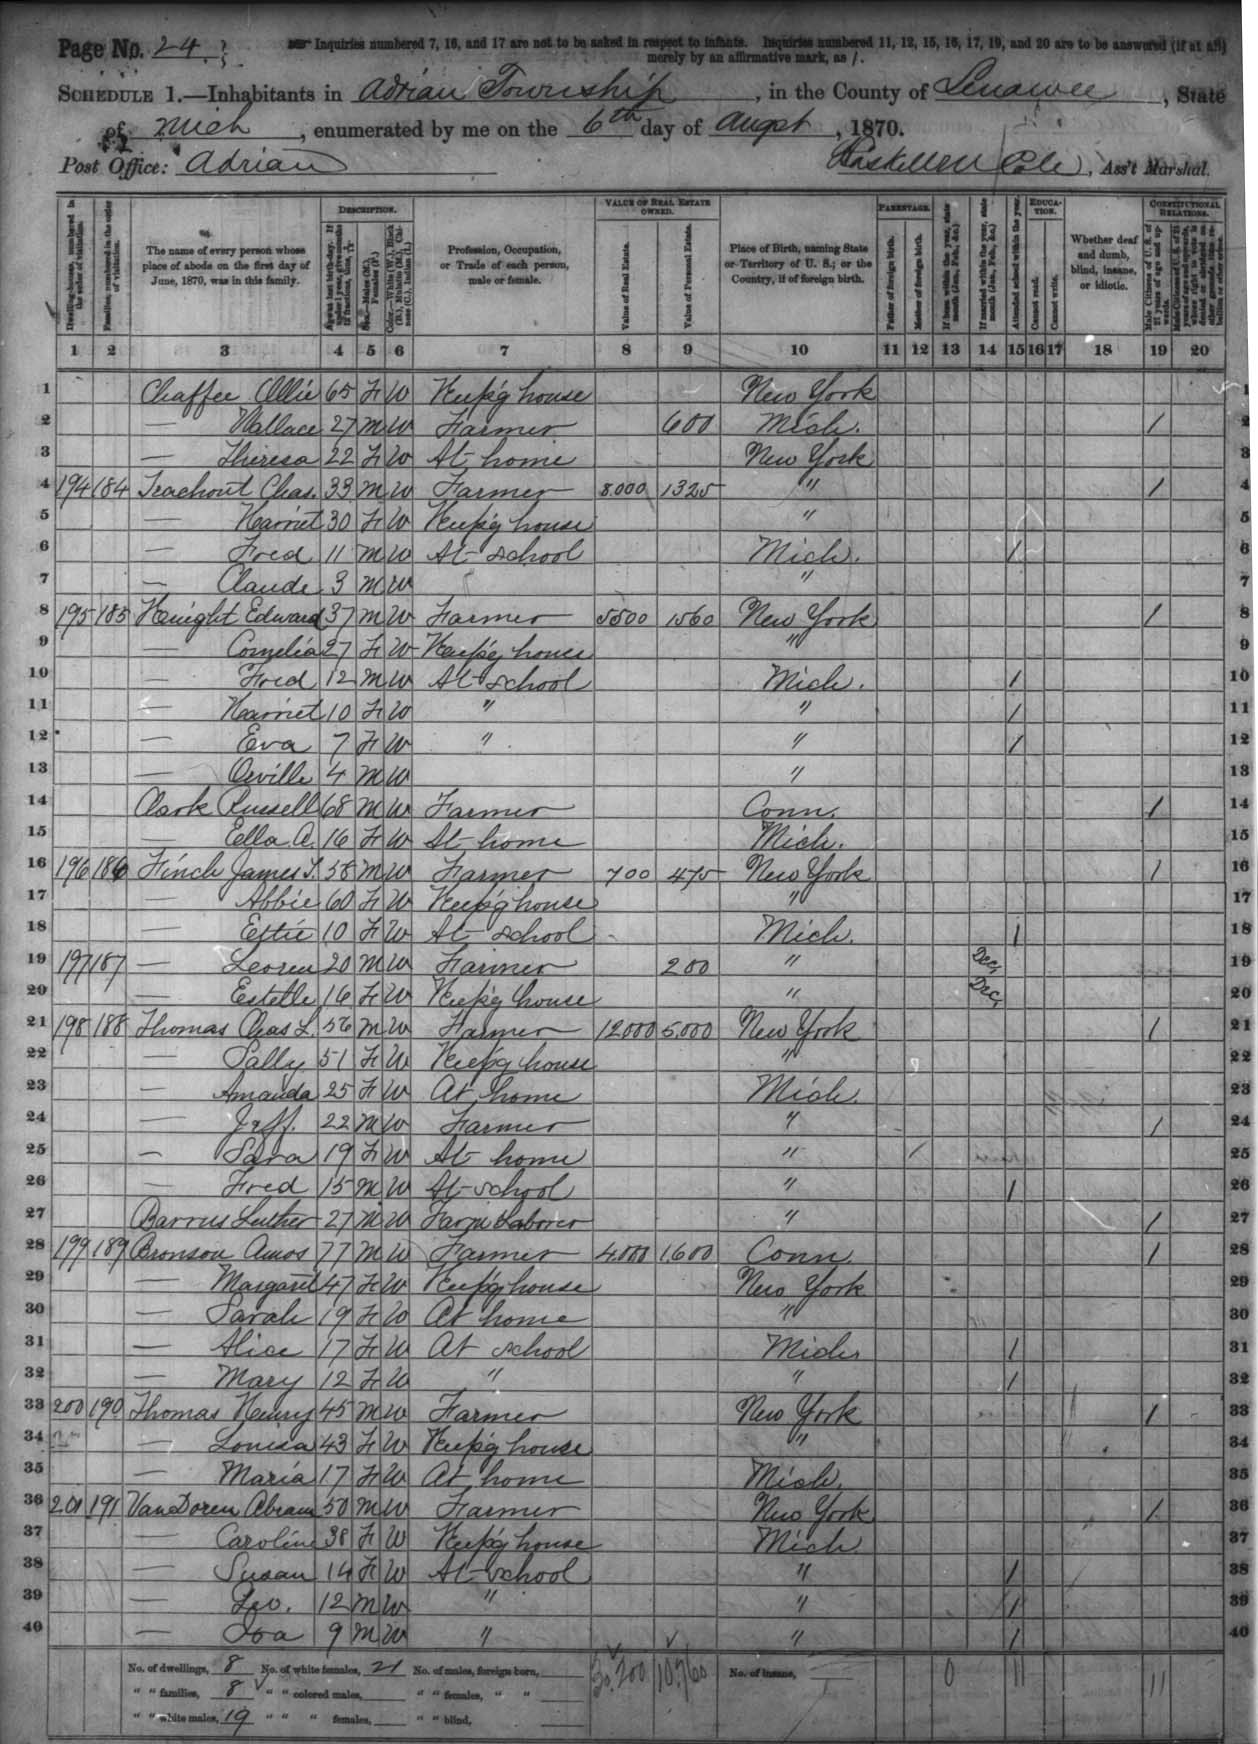 Page No. 24
Inquiries numbered 7, 16, and 17 are not to be asked in respect to infants. Inquiries numbered 11, 12, 15, 16, 17, 19, and 20 are to be answered (if at all)
merely by an affirmative mark, as /.
SCHEDULE 1.—Inhabitants in Adrian Township, in the County of Lenawee, State
of Mich, enumerated by me on the 6th day of Augst, 1870.
Post Office: Adrian Cole, Ass't Marshal.
Dwelling-houses, numbered in the order of visitation.
Families, numbered in the order of visitation.
The name of every person whose place of abode on the first day of June, 1870, was in this family.
DESCRIPTION.
Age at last birth-day. If under 1 year, give months in fractions, thus,
Sex.—Males (M.), Females (F.)
Color.—White (W.), Black (B.), Mulatto (M.), Chinese (C.), Indian (I.)
Profession, Occupation, or Trade of each person, male or female.
VALUE OF REAL ESTATE OWNED.
Value of Real Estate.
Value of Personal Estate.
Place of Birth, naming State or Territory of U. S.; or the Country, if of foreign birth.
PARENTAGE.
Father of foreign birth.
Mother of foreign birth.
If born within the year, state month (Jan., Feb., &c.)
If married within the year, state month (Jan., Feb., &c.)
Attended school within the year.
EDUCATION.
Cannot read.
Cannot write.
Whether deaf and dumb, blind, insane, or idiotic.
CONSTITUTIONAL RELATIONS.
Male Citizens of U. S. of 21 years of age and upwards.
1 2 3 4 5 6 7 8 9 10 11 12 13 14 15 16 17 18 19 20
1 Chaffee Ollie 65 F W Keep'g house New York 1
2 — Wallace 27 M W Farmer 600 Mich. / 2
3 — Theresa 22 F W At home New York 3
4 194 184 Teachout Chas. 33 M W Farmer 8.000 1325 " / 4
5 — Harriet 30 F W Keep'g house " 5
6 — Fred 11 M W At school Mich. / 6
7 — Claude 3 M W " 7
8 195 185 Height Edward 37 M W Farmer 5500 1560 New York / 8
9 — Cornelia 27 F W Keep'g house " 9
10 — Fred 12 M W At school Mich. / 10
11 — Harriet 10 F W " " / 11
12 — Eva 7 F W " " / 12
13 — Orville 4 M W " 13
14 Clark Russell 68 M W Farmer Conn. / 14
15 — Ella A. 16 F W At home Mich. 15
16 196 186 Finch James S. 58 M W Farmer 700 475 New York / 16
17 — Abbie 60 F W Keep'g house " 17
18 — Estie 10 F W At school Mich. / 18
19 197 187 — Loren 20 M W Farmer 200 " Dec, 19
20 — Estelle 16 F W Keep'g house " Dec, 20
21 198 188 Thomas Chas L. 56 M W Farmer 12000 5,000 New York / 21
22 — Sally 51 F W Keep'g house " 22
23 — Amanda 25 F W At home Mich. 23
24 — Jeff. 22 M W Farmer " / 24
25 — Sara 19 F W At home " / 25
26 — Fred 15 M W At school " / 26
27 Barrus Luther 27 M W Farm Laborer " / 27
28 199 189 Bronson Amos 77 M W Farmer 4.000 1.600 Conn. / 28
29 — Margaret 47 F W Keep'g house New York 29
30 — Sarah 19 F W At home " 30
31 — Alice 17 F W At school Mich. / 31
32 — Mary 12 F W " " / 32
33 200 190 Thomas Henry 45 M W Farmer New York / 33
34 — Louisa 43 F W Keep'g house " 34
35 — Maria 17 F W At home Mich. 35
36 201 191 VanDoren Abram 50 M W Farmer New York / 36
37 — Caroline 38 F W Keep'g house Mich. 37
38 — Susan 14 F W At school " / 38
39 — Leo. 12 M W " " / 39
40 — Ira 9 M W " " / 40
No. of dwellings, 8 No. of white females, 21 No. of males, foreign born, 30.200 10.760 No. of insane, 0 11 11
" " families, 8 " " colored males, " " females, " "
" " white males, 19 " " " females, " " blind,